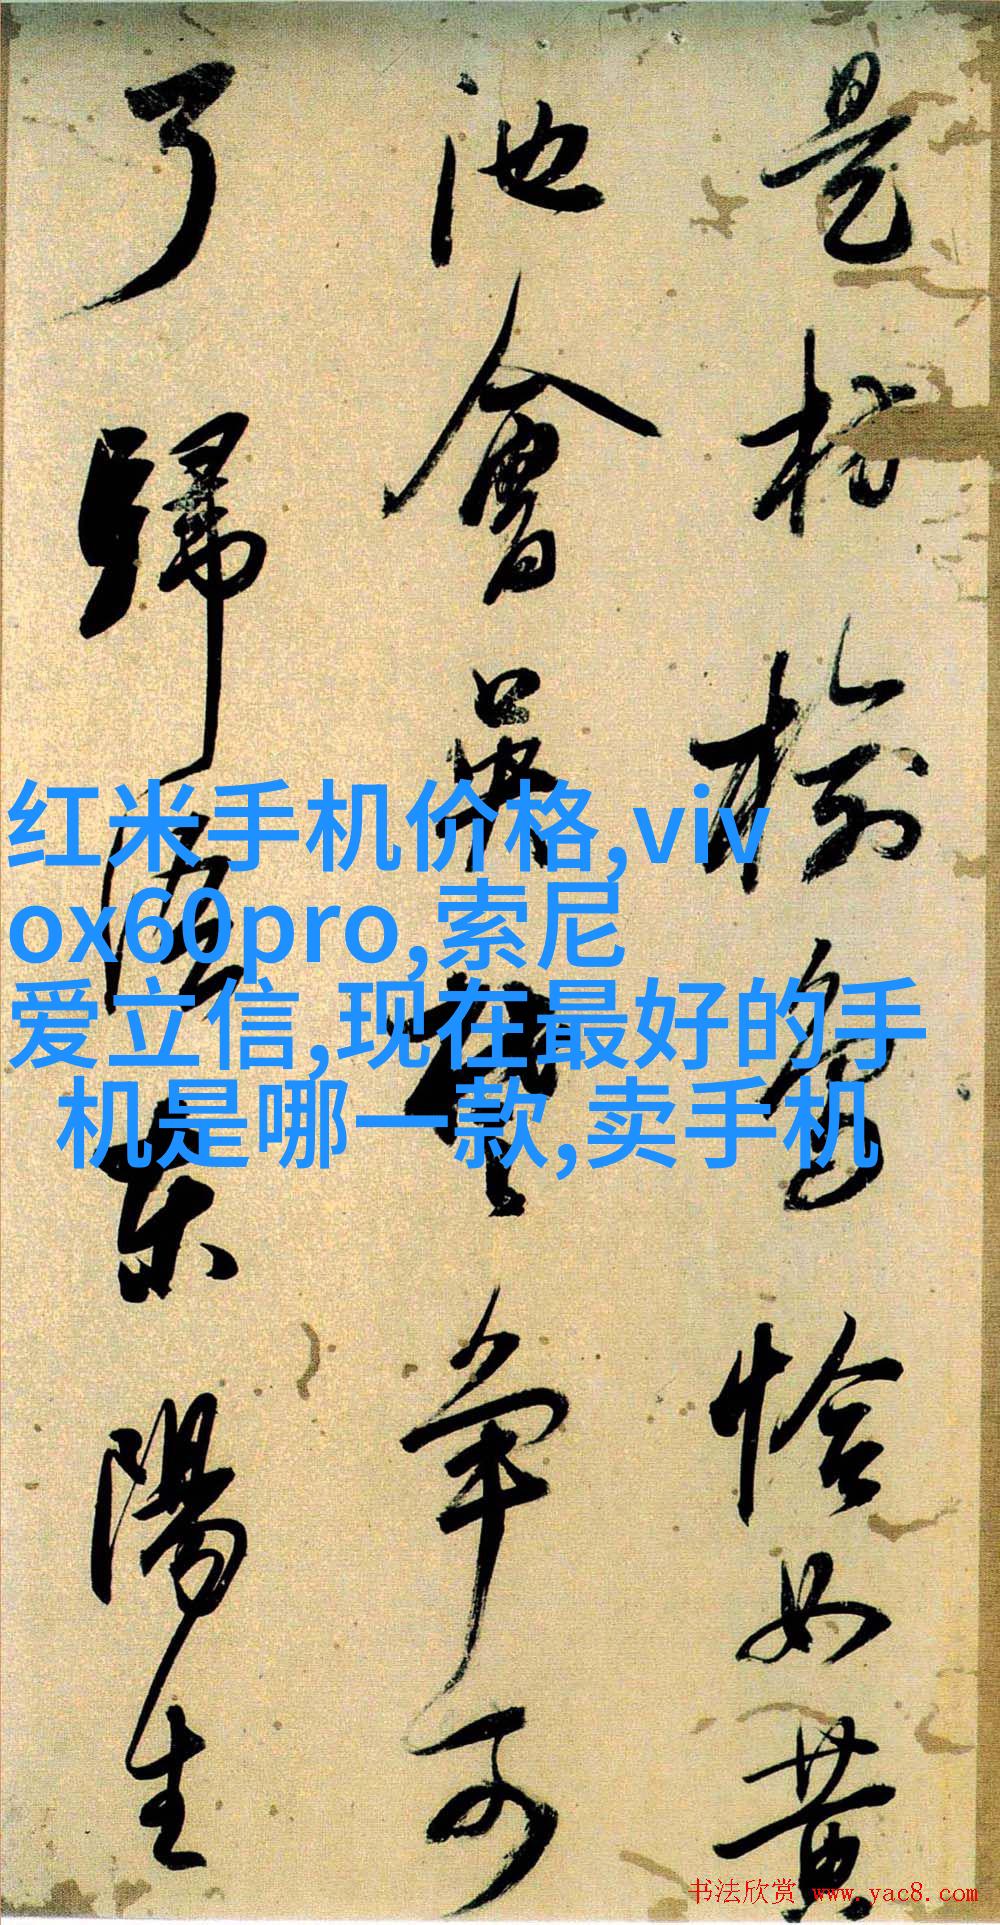 是枋榆恰如黄
池會争可
了歸東陽生
红米手机价格,viv
ox60pro,索尼
爱立信,现在最好的手
机是哪一款,卖手机
书法欣赏 www.yac8.com